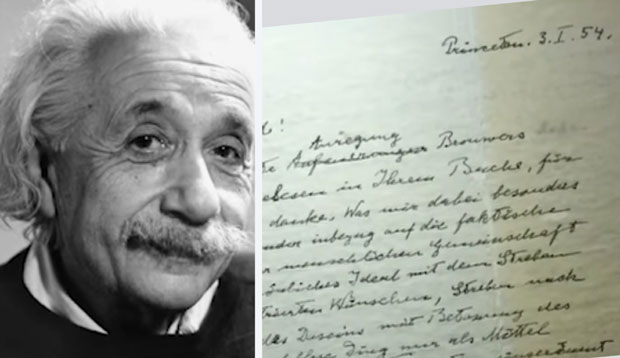 Princeton. 3. I. 54.
!
Anregung
Brouwers
elesen in Ihrem Buche, für
danke. Was mir dabei besonders
nder inbezug auf die faktische
r menschlichen Gemeinschaft
önliches Ideal mit dem Streben
trierten Wünschen, Streben nach
des Daseins mit Betonung des
Ding nur als Mittel